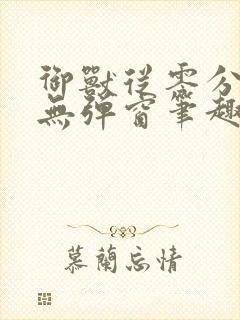 御獸從零分
無彈窗筆趣
慕蘭忘情